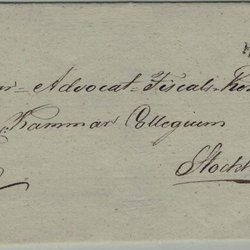 Advocat-Fiscals
Kammar Collegium
Stockh